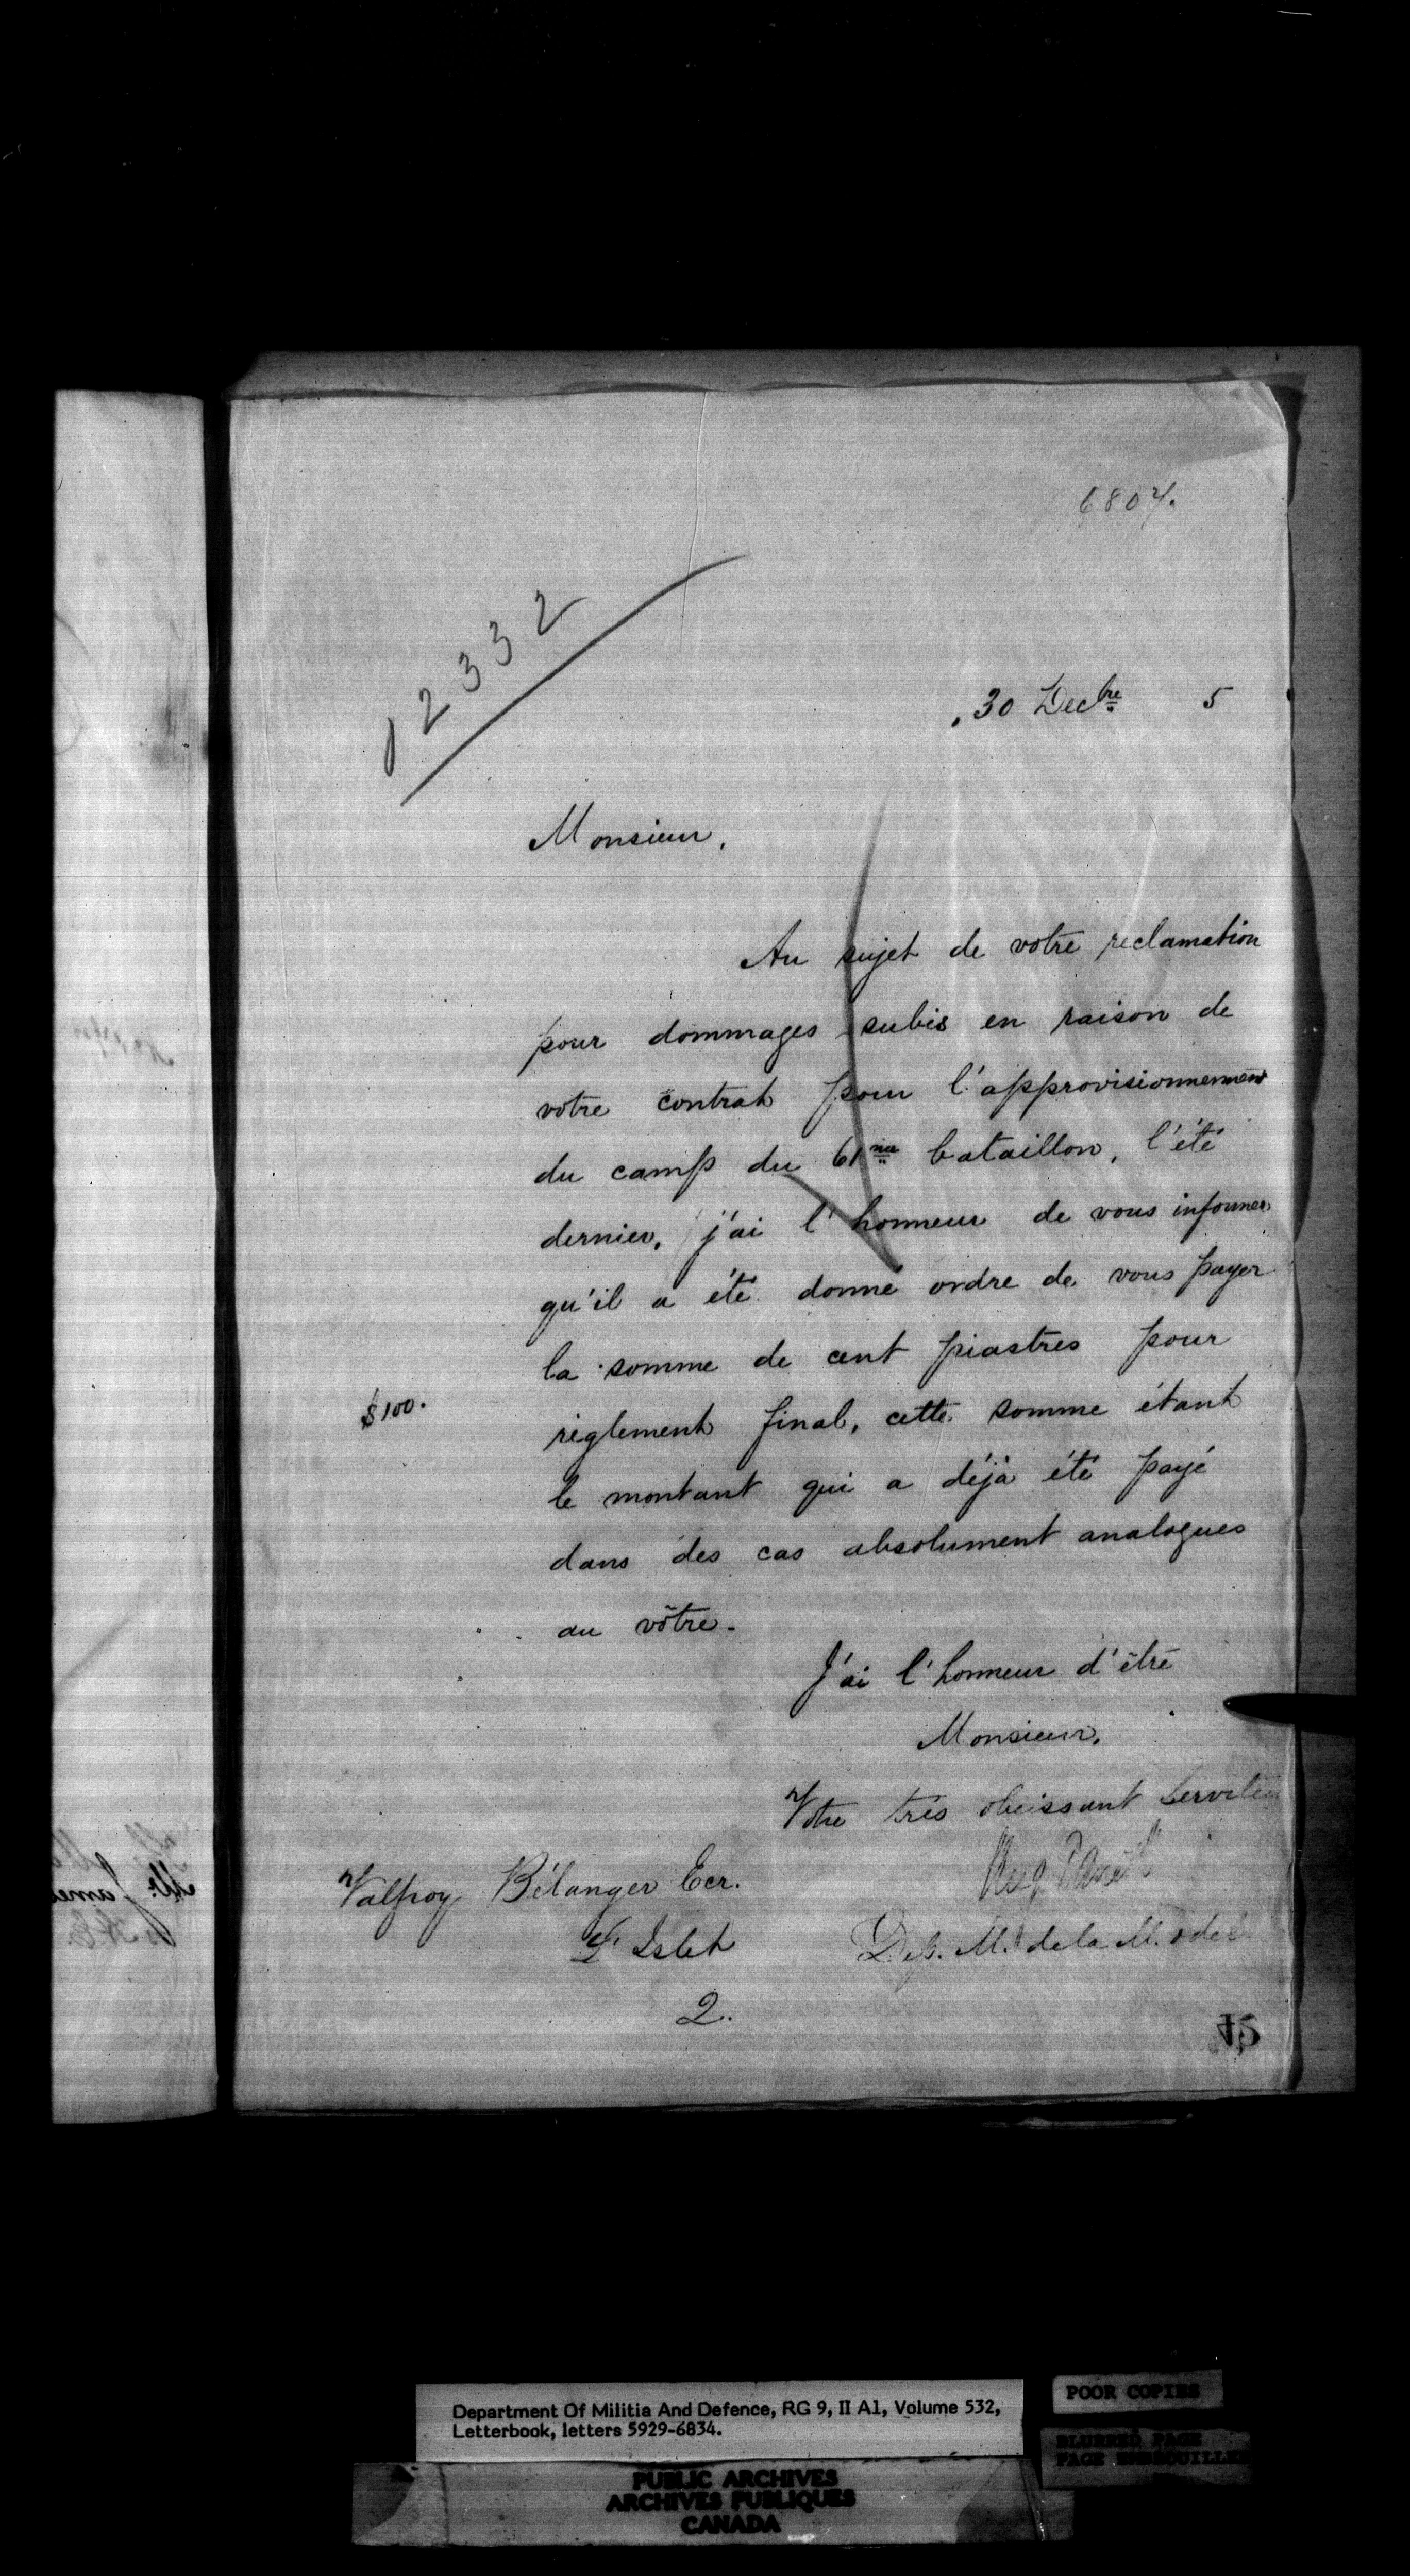 6807.
12332
30 Decbre 5
Monsieur,
Au sujet de votre réclamation
pour dommages subis en raison de
votre contrat pour l'approvisionnement
du camp du 61me bataillon, l'été
dernier, j'ai l'honneur de vous informer
qu'il a été donné ordre de vous payer
la somme de cent piastres pour
$100.
règlement final, cette somme étant
le montant qui a déjà été payé
dans des cas absolument analogues
au vôtre.
J'ai l'honneur d'être
Monsieur,
Votre très obeissant Serviteu
Aug Panet
Valfroy Bélanger Ecr.
L'Islet
Dep. M. de la M. & de l
2.
45
Department Of Militia And Defence, RG 9, II A1, Volume 532,
Letterbook, letters 5929-6834.
POOR COPIES
BLURRED PAGE
PAGE EMBROUILLEE
PUBLIC ARCHIVES
ARCHIVES PUBLIQUES
CANADA